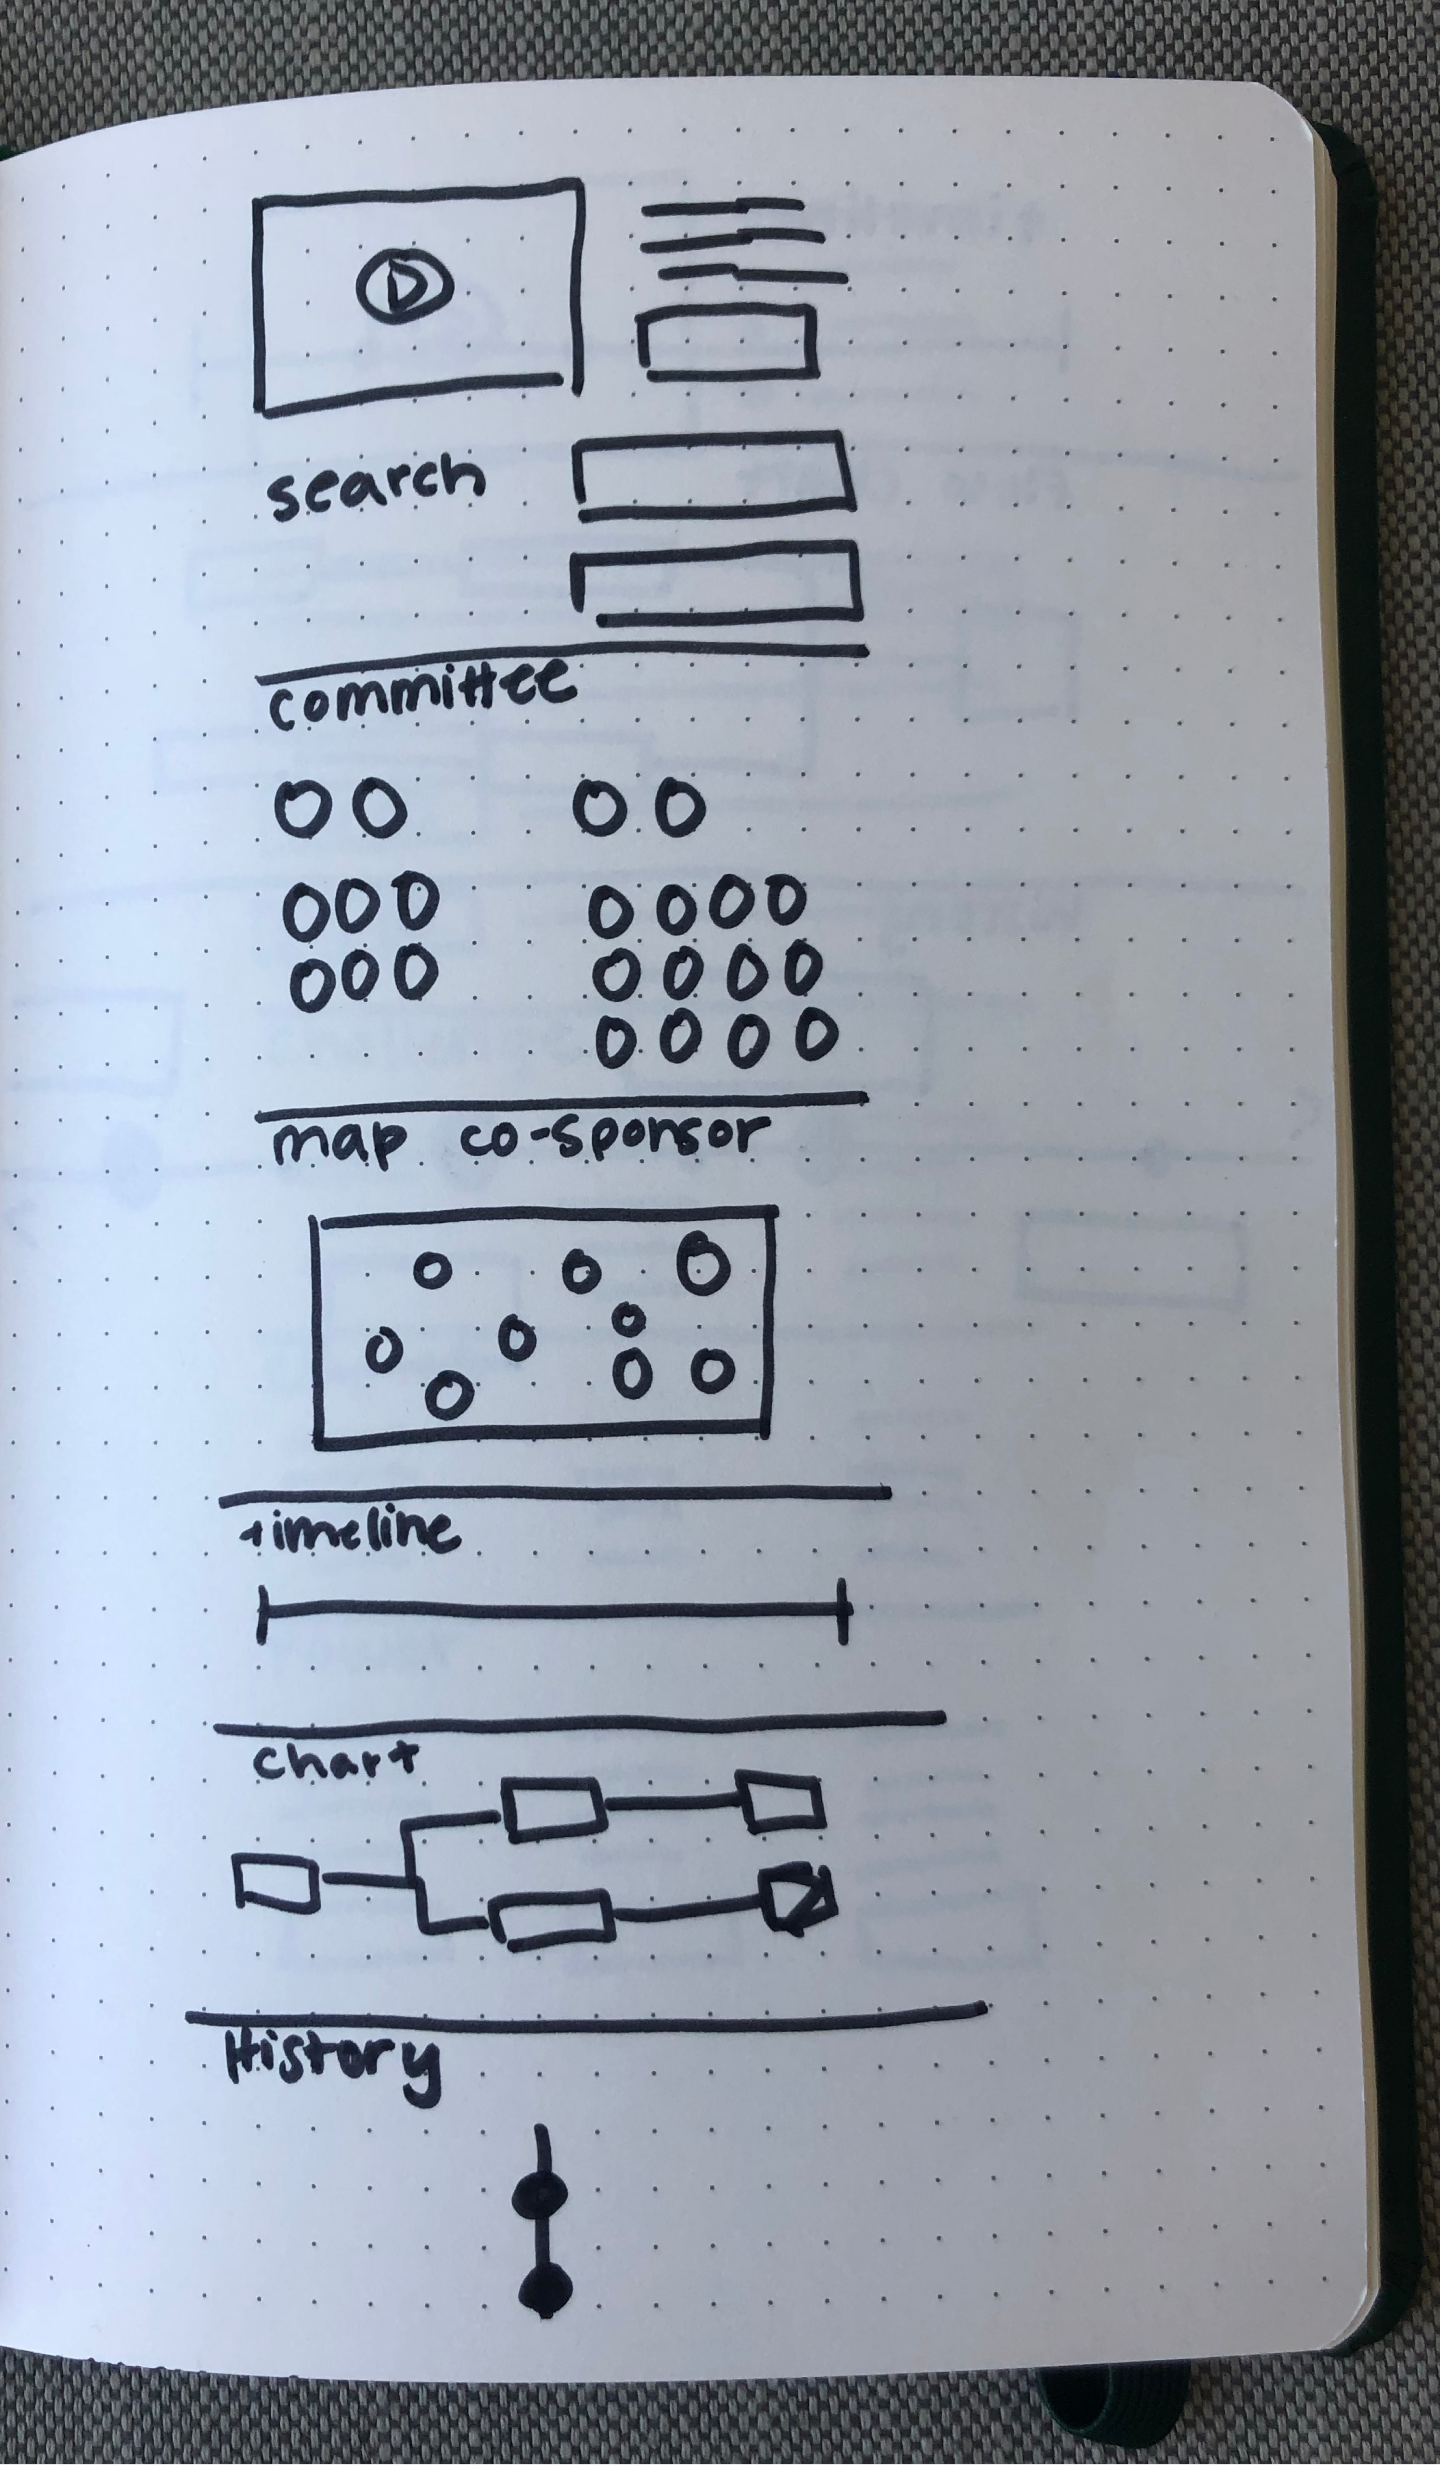 search
committee
map co-sponsor
timeline
chart
History